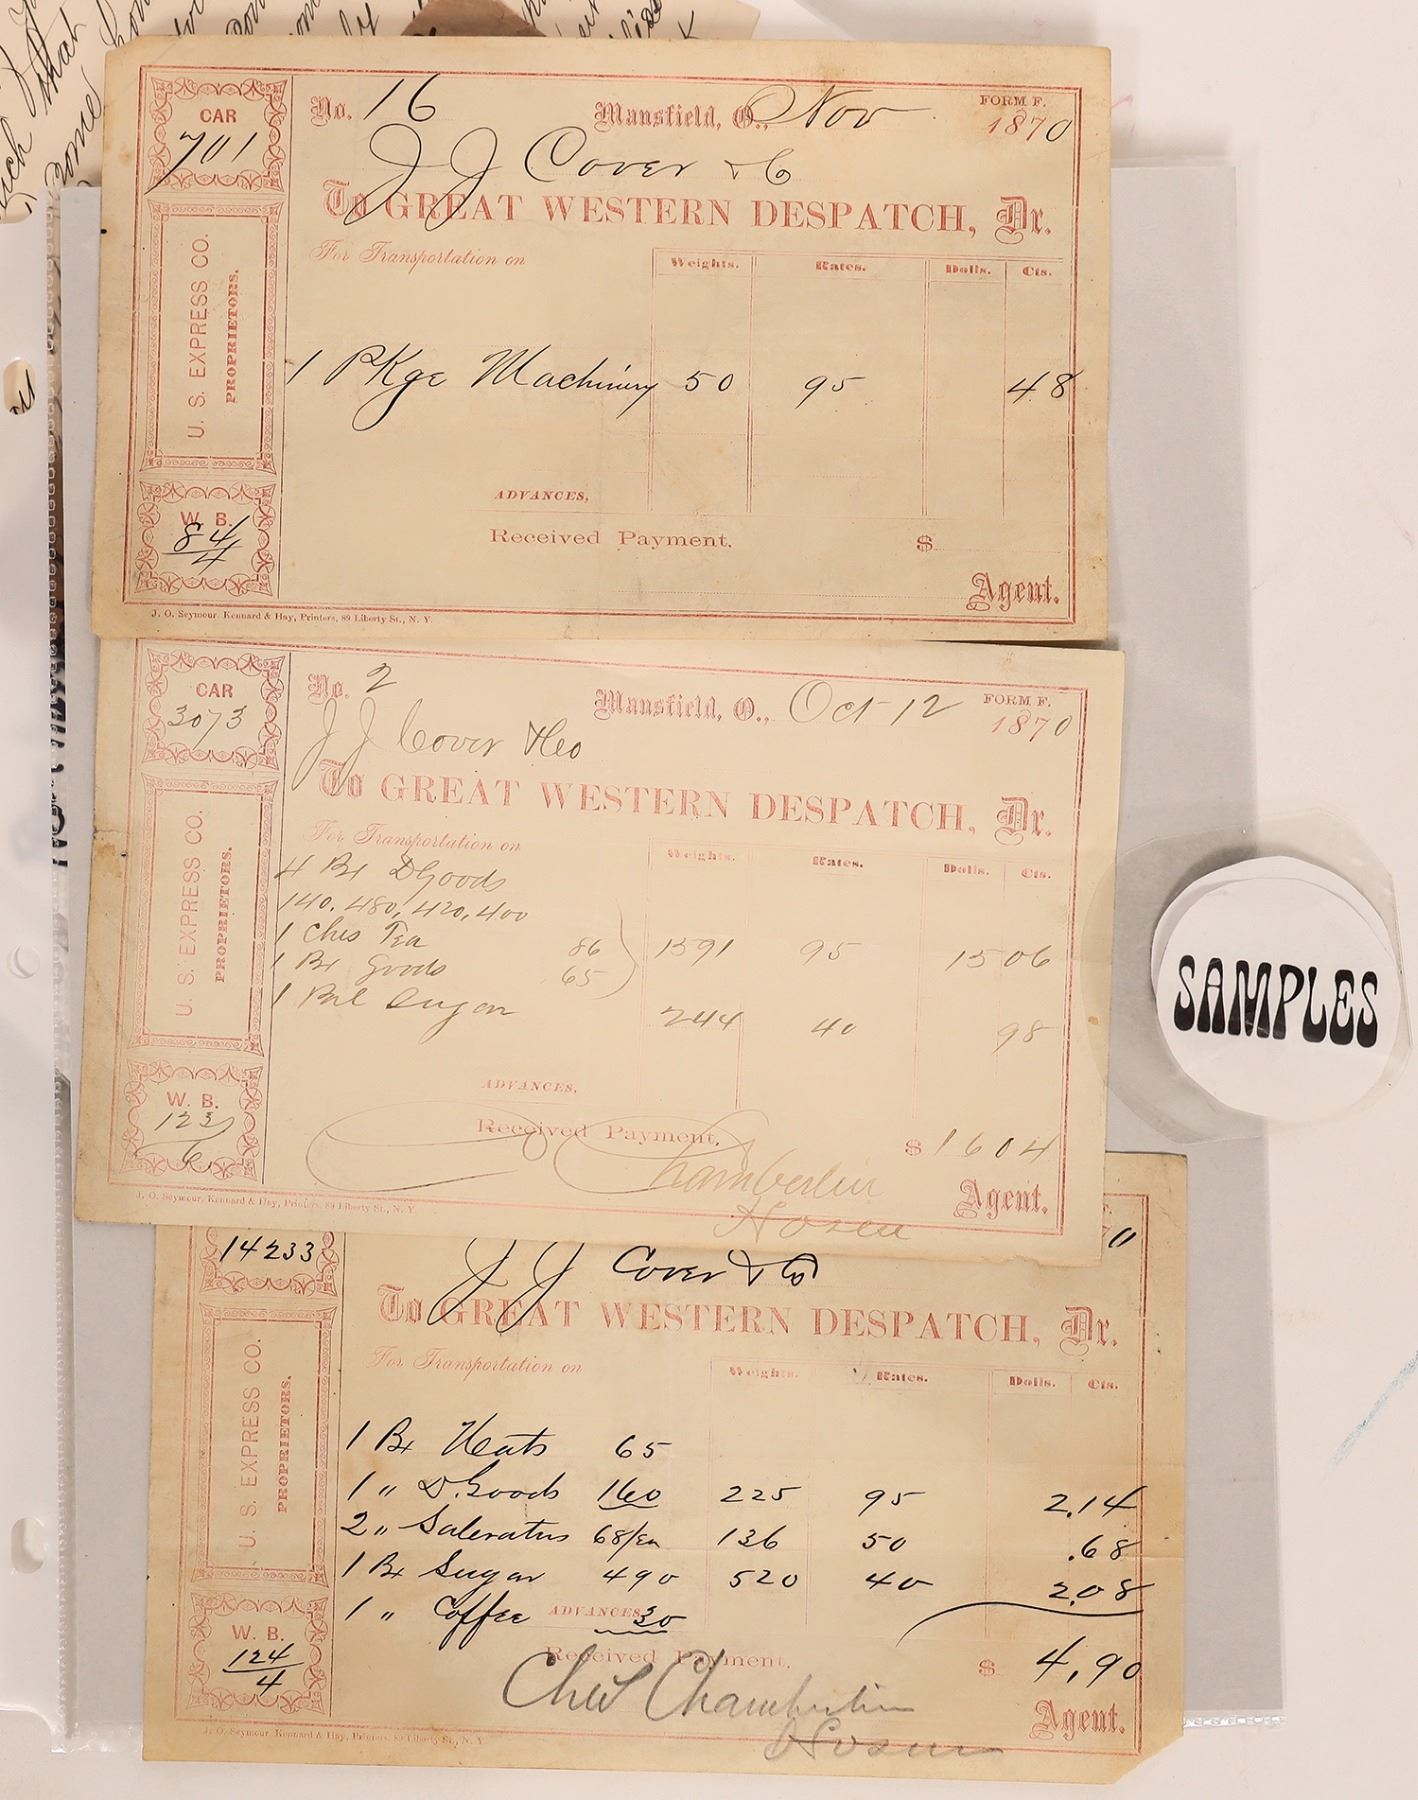 CAR
701
U. S. EXPRESS CO.
PROPRIETORS.
W. B.
84/4
No. 16 Mansfield, O., Nov FORM F. 1870
J J Cover & C
To GREAT WESTERN DESPATCH, Dr.
For Transportation on Weights. Rates. Dolls. Cts.
1 PKge Machinery 50 95 48
ADVANCES,
Received Payment. $
Agent.
J. O. Seymour, Kennard & Hay, Printers, 89 Liberty St., N. Y.
CAR
3073
U. S. EXPRESS CO.
PROPRIETORS.
W. B.
123/6
No. 2 Mansfield, O., Oct 12 FORM F. 1870
J J Cover & Co
To GREAT WESTERN DESPATCH, Dr.
For Transportation on Weights. Rates. Dolls. Cts.
4 Bx D Goods
140, 480, 420, 400
1 Ches Tea 86 1591 95 15 06
1 Bx Goods 65
1 Bbl Sugar 244 40 98
ADVANCES,
Received Payment. $ 1604
Chamberlin
Agent.
J. O. Seymour, Kennard & Hay, Printers, 89 Liberty St., N. Y.
14233
U. S. EXPRESS CO.
PROPRIETORS.
W. B.
124/4
70
J J Cover & Co
To GREAT WESTERN DESPATCH, Dr.
For Transportation on Weights. Rates. Dolls. Cts.
1 Bx 65
1 " D. Goods 160 225 95 2.14
2 " Saleratus 68/Ea 136 50 .68
1 Bx Sugar 490 520 40 2.08
1 " Coffee ADVANCES, 30
Received Payment. $ 4,90
Chas Chamberlin
Agent.
J. O. Seymour, Kennard & Hay, Printers, 89 Liberty St., N. Y.
SAMPLES